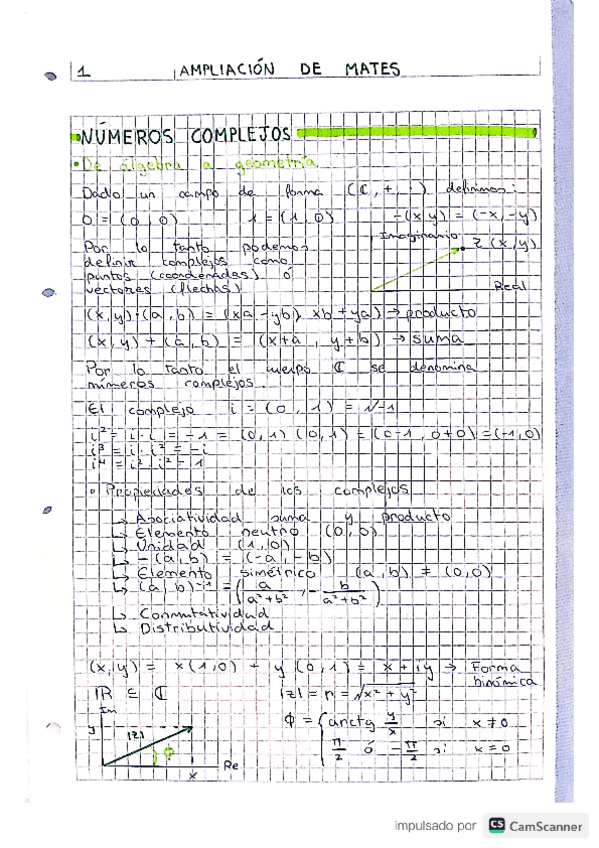 1 AMPLIACIÓN DE MATES
NÚMEROS COMPLEJOS
• De álgebra a geometría
Dado un campo de forma (ℂ, +, ·) definimos:
0 = (0, 0) 1 = (1, 0) -(x, y) = (-x, -y)
Por lo tanto podemos
definir complejos como
puntos (coordenadas) ó
vectores (flechas)
Imaginario
z (x, y)
Real
(x, y)·(a, b) = (xa - yb, xb + ya) → producto
(x, y) + (a, b) = (x+a, y+b) → suma
Por lo tanto el cuerpo ℂ se denomina
números complejos.
El complejo i = (0, 1) = √-1
i² = i·i = -1 = (0, 1)(0, 1) = (0-1, 0+0) = (-1, 0)
i³ = i·i² = -i
i⁴ = i²·i² = 1
• Propiedades de los complejos
↳ Asociatividad suma y producto
↳ Elemento neutro (0, 0)
↳ Unidad (1, 0)
↳ -(a, b) = (-a, -b)
↳ Elemento simétrico (a, b) ≠ (0, 0)
↳ (a, b)⁻¹ = (a/(a²+b²), -b/(a²+b²))
↳ Conmutatividad
↳ Distributividad
(x, y) = x(1, 0) + y(0, 1) = x + iy → Forma
binómica
ℝ ⊆ ℂ |z| = r = √x² + y²
Im
y
|z|
ϕ
x
Re
ϕ = { arctg y/x si x ≠ 0
π/2 ó -π/2 si x = 0
impulsado por CS CamScanner